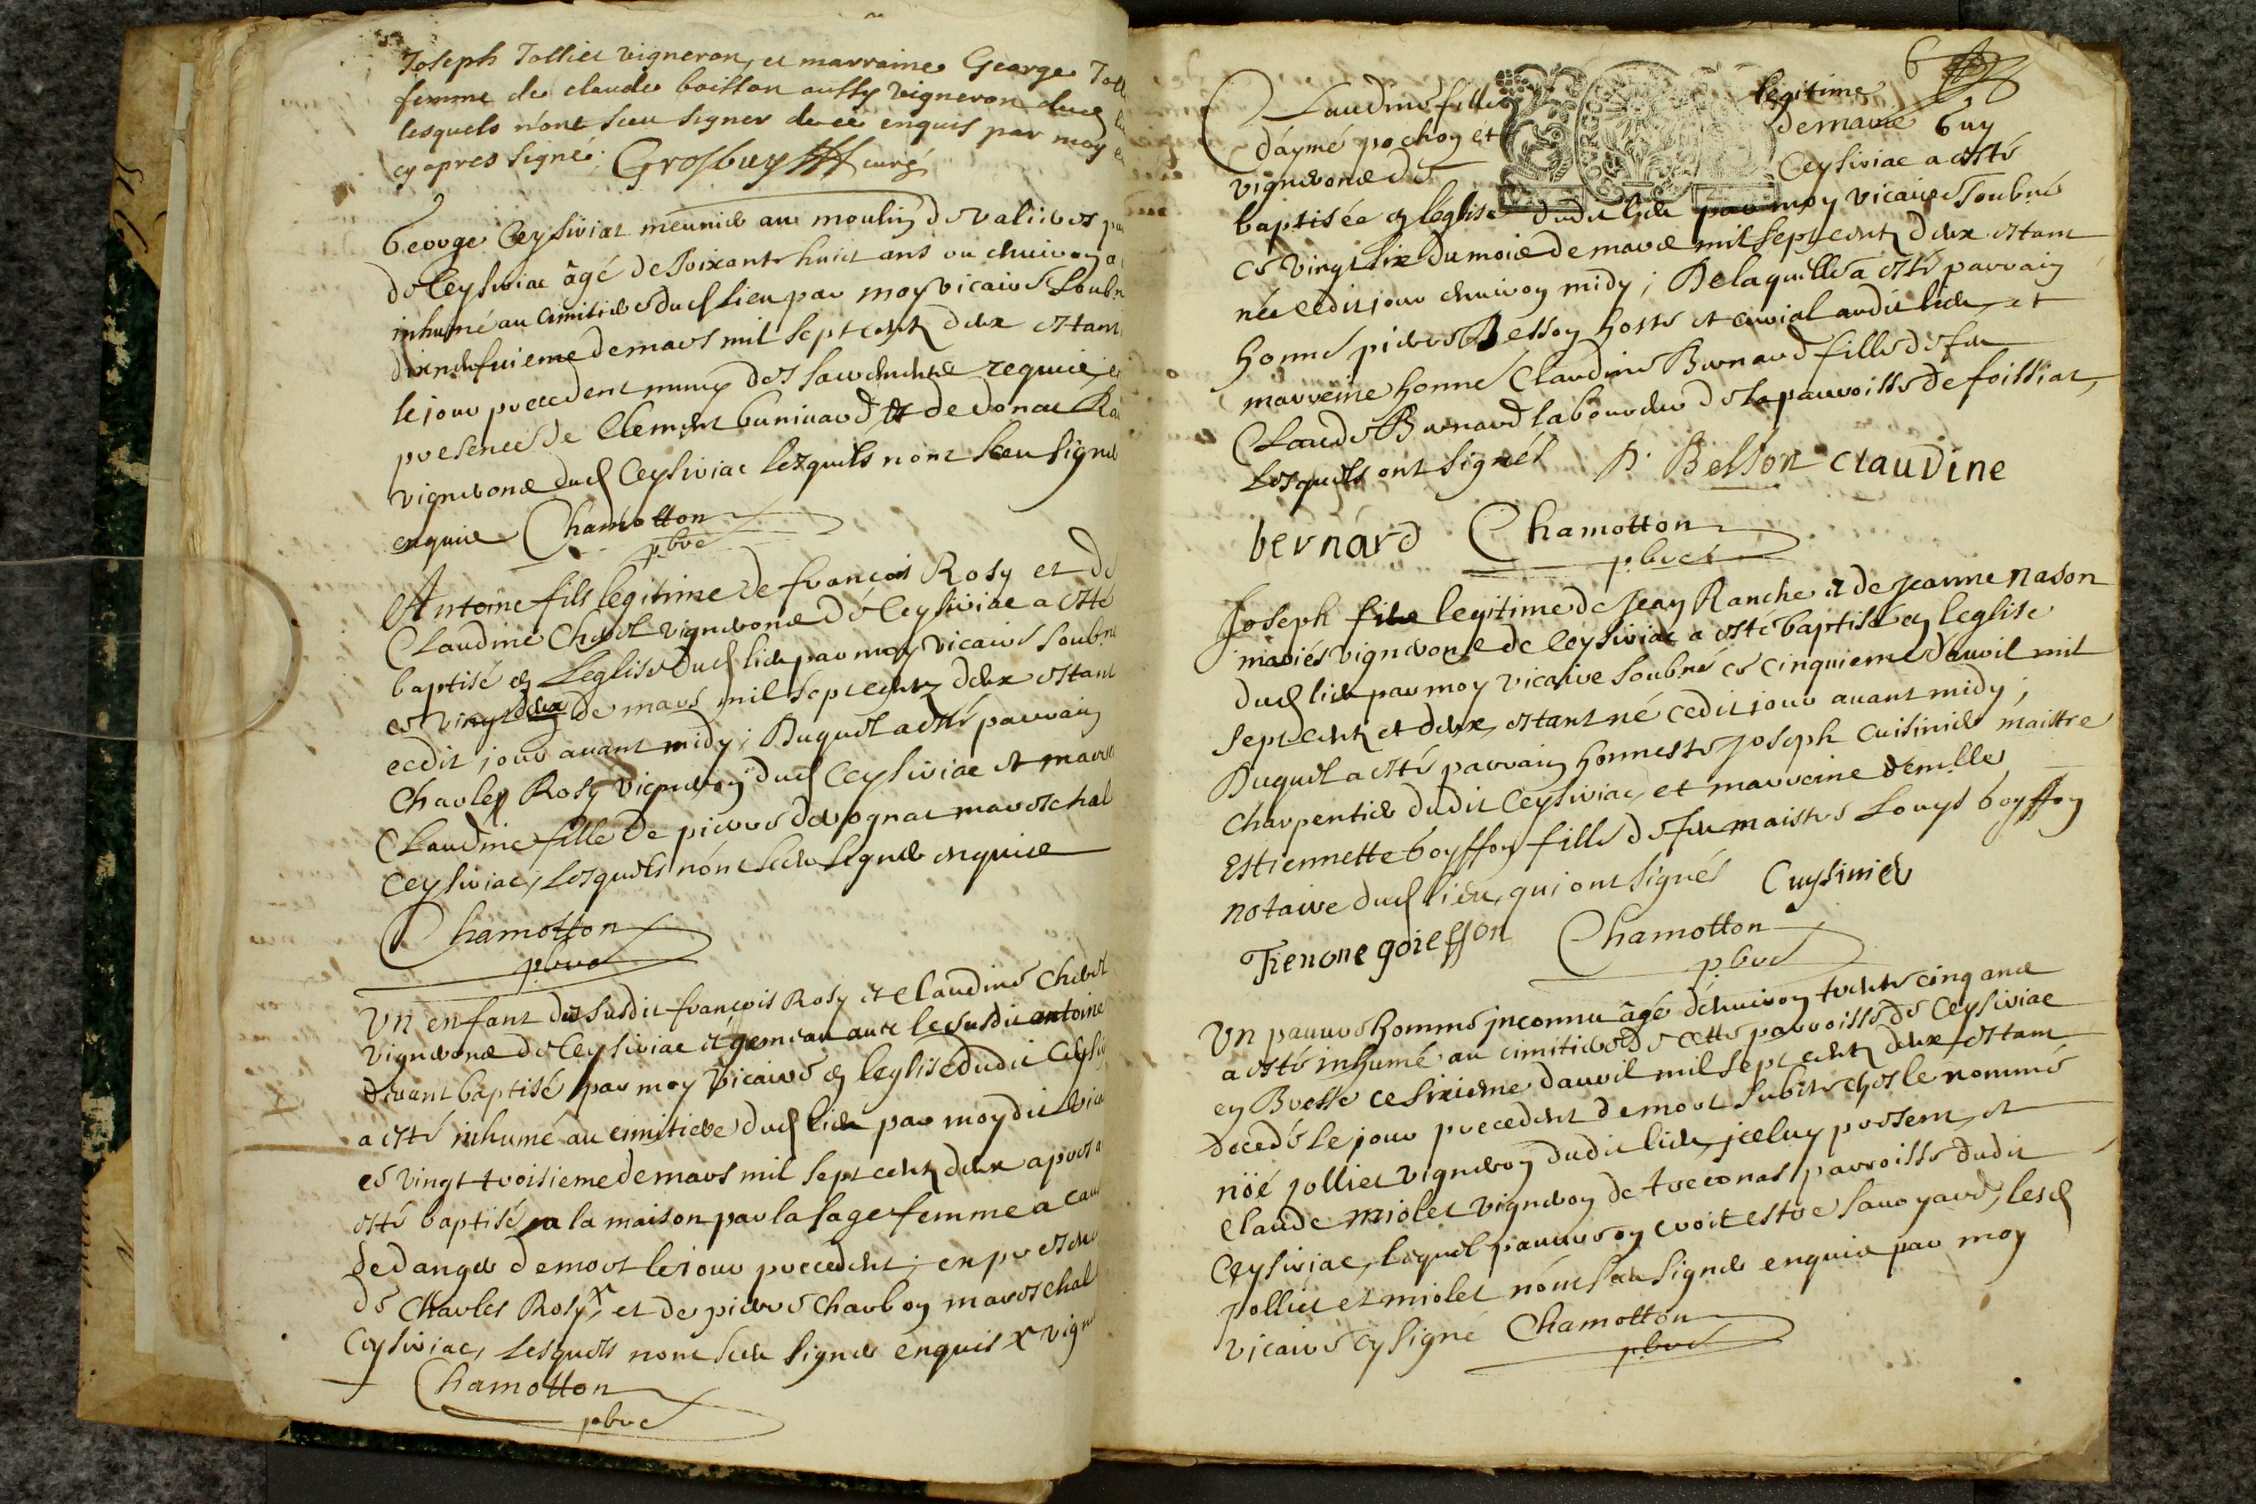 Joseph Tolliet vigneron, et marraine George Toll
femme de claude boisson aussy vigneron dud
lesquels n'ont sceu signer de ce enquis par moy
cy apres signé. Grosbuy curé
George Ceysiriat meunier au moulin de
de Ceysiriac âgé de soixante huict ans ou environ a
inhumé au cimitiere dud lieu par moy vicaire soubn
dixneufuieme de mars mil sept cent deux estant
le jour precedent muny des sacrements requis, en
presence de Clement Guniuard et de Donat
vignerons dud Ceysiriac lezquels n'ont sceu signer
enquis Chamotton
pbre
Antoine fils legitime de françois Rosy et de
Claudine Chevel vignerons de Ceysiriac a esté
baptisé en l'eglise dud lieu par moy vicaire soubné
ce vingt deux de mars mil sept centz deux estant
cedit jour avant midy; Duquel a esté parrain
Charles Rosy vigneron dud Ceysiriac et marr
Claudine fille de pierre derognat mareschal
Ceysiriac, lesquels n'ont sceu signer enquis
Chamotton
pbre
Un enfant du susdit françois Rosy et Claudine Chevel
vignerons de Ceysiriac et gemeau avec le susdit antoine
devant baptisé par moy vicaire en l'eglise dudit Ceysi
a esté inhumé au cimitiere dud lieu par moydit vica
ce vingt troisieme de mars mil sept centz deux apres a
esté baptisé a la maison par la sage femme a cau
de danger de mort le jour precedent; en presence
de Charles Rosy x, et de pierre Charbon mareschal
Ceysiriac, lesquels n'ont sceu signer enquis x vigne
Chamotton
pbre
6
Claudine fille legitime
d'aymé pochon et de marie Guy
vignerons de Ceysiriac a esté
baptisée en l'église dudit lieu par moy vicaire soubné
ce vingt six du mois de mars mil sept centz deux estant
née cedit jour environ midy; De laquelle a esté parrain
honné pierre Besson hoste et curial audit lieu, et
marreine honné Claudine Bernard fille de feu
Claude Bernard laboureur de la parroisse de foissiat,
Lesquels ont signés P. Besson claudine
bernard Chamotton
pbre
Joseph fils legitime de Jean Ranche et de Jeanne nason
mariés vignerons de Ceysiriac a esté baptisé en l'eglise
dud lieu par moy vicaire soubné ce cinquieme d'auril mil
sept centz et deux, estant né cedit jour auant midy;
Duquel a esté parrain honneste Joseph Cuisinier maistre
charpentier dudit Ceysiriac, et marreine demlle
Estiennette boyffon fille de feu maistre Louys boyffon
notaire dud lieu, qui ont signés Cuysinier
Tienone goieffon Chamotton
pbre
Un pauure homme inconnu âgé d'enuiron trente cinq ans
a esté inhumé au cimitiere de cette parroisse de Ceysiriac
en Bresse ce sixieme d'auril mil sept centz deux, estant
decedé le jour precedent de mort subite chez le nommé
nöé jolliet vigneron dudit lieu, iceluy present, et
claude miolet vigneron de treconas parroisse dudit
Ceysiriac, lequel pauure on croit estre sauoyard, lesd
jolliet et miolet n'ont sceu signer enquis par moy
vicaire cy signé Chamotton
pbre